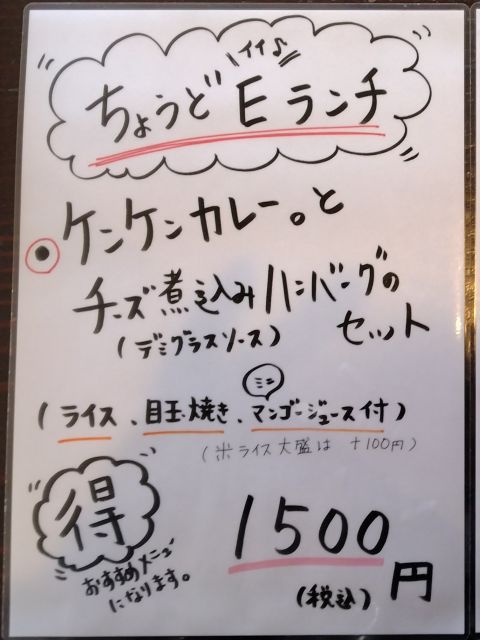 イイ♪
ちょうど E ランチ
ケンケンカレー。と
チーズ煮込みハンバーグの
(デミグラスソース)
セット
ミニ
(ライス、目玉焼き、マンゴージュース付)
(※ライス大盛は +100円)
得
おすすめメニュー
になります。
1500円
(税込)